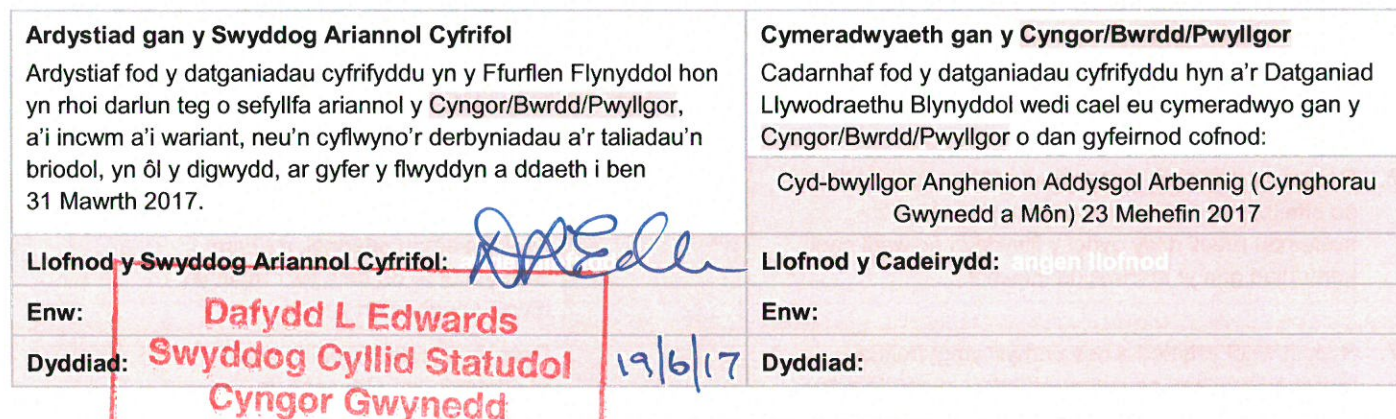 Ardystiad gan y Swyddog Ariannol Cyfrifol
Ardystiaf fod y datganiadau cyfrifyddu yn y Ffurflen Flynyddol hon
yn rhoi darlun teg o sefyllfa ariannol y Cyngor/Bwrdd/Pwyllgor,
a'i incwm a'i wariant, neu'n cyflwyno'r derbyniadau a'r taliadau'n
briodol, yn ôl y digwydd, ar gyfer y flwyddyn a ddaeth i ben
31 Mawrth 2017.
Llofnod y Swyddog Ariannol Cyfrifol:
Enw:
Dafydd L Edwards
Dyddiad:
Swyddog Cyllid Statudol
19/6/17
Cyngor Gwynedd
Cymeradwyaeth gan y Cyngor/Bwrdd/Pwyllgor
Cadarnhaf fod y datganiadau cyfrifyddu hyn a'r Datganiad
Llywodraethu Blynyddol wedi cael eu cymeradwyo gan y
Cyngor/Bwrdd/Pwyllgor o dan gyfeirnod cofnod:
Cyd-bwyllgor Anghenion Addysgol Arbennig (Cynghorau
Gwynedd a Môn) 23 Mehefin 2017
Llofnod y Cadeirydd: angen llofnod
Enw:
Dyddiad: